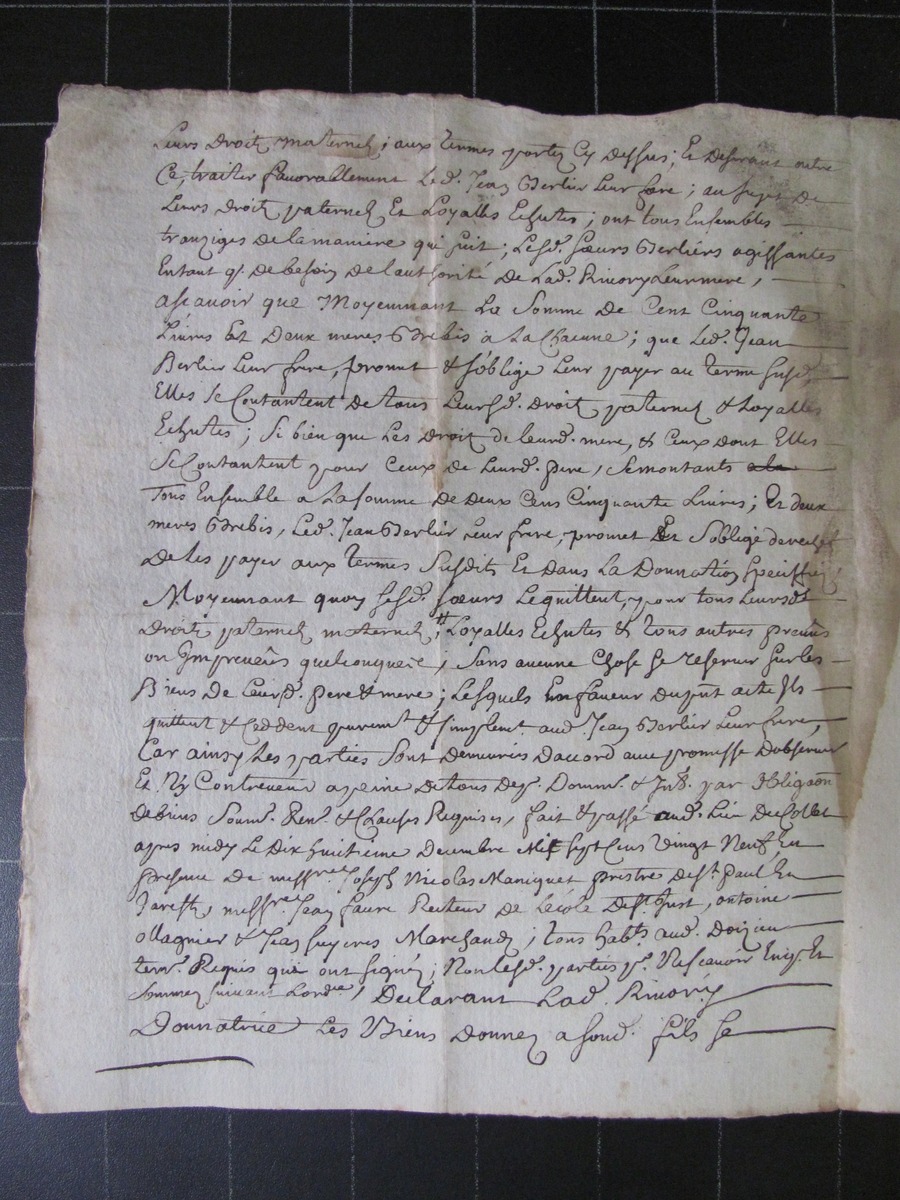 Leurs droit maternel; aux termes portez Cy dessus; Et desirant outre
Ce, traiter favorablement Led. Jean Berlier Leur frere; au sujet de
Leurs droit paternel Et Loyalles Echutes; ont tous Ensembles
tranziges de la maniere qui suit; Lesd. sœurs Berliers agissantes
Entant q. de besoin de l'authorité de Lad. Rivory Leur mere,
ascavoir que Moyennant La Somme de Cent Cinquante
Livres Et Deux meres Brebis a La Chacune; que Led. Jean
Berlier Leur frere, promet & s'oblige Leur payer au terme susd.
Elles se Contantent de tous Leursd. droit paternel & Loyalles
Echutes; Si bien que Les Droit de Leurd. mere, & Ceux dont Elles
Se Contantent pour Ceux de Leurd. pere, se montants
Tous Ensemble a La somme de deux Cens Cinquante Livres; Et deux
meres Brebis, Led. Jean Berlier Leur frere, promet Et s'oblige derechef
de Les payer aux termes Susdits Et dans La Donnation speciffiez
Moyennant quoy Lesd. sœurs Le quittent, pour tous Leursdt
droit paternel maternel, Loyalles Echutes & tous autres preveus
ou Impreveus quelconques, sans aucune Chose se reserver sur Les
Biens de Leurd. pere & mere; Lesquels En faveur du pnt acte Ils
quittent & Ceddent puremt & simplemt. aud. Jean Berlier Leur frere,
Car ainsy Les parties Sont demeurées d'accord avec promesse d'observer
Et Ny Contrevenir a peine de tous dep. Domm. & Int. par Obligaon
de biens Soum. Ren. & Clauses Requises, fait & passé aud. Lieu du Collet
apres midy Le Dix huitieme Decembre Mil sept Cens vingt Neuf, En
presence de messre. Joseph Nicolas Maniquet prestre de St. Paul En
Jarest, messre. Jean faure Recteur de L'école de St. Just, antoine
ollagnier & Jean Marchands; tous habts. aud. Doizieu
temr. Requis qui ont signéz; Non Lesd. parties pr. Ne scavoir Enq. Et
Sommez suivant L'ordce, Declarant Lad. Rivory
Donnatrice Les Biens Donnez a sond. fils se